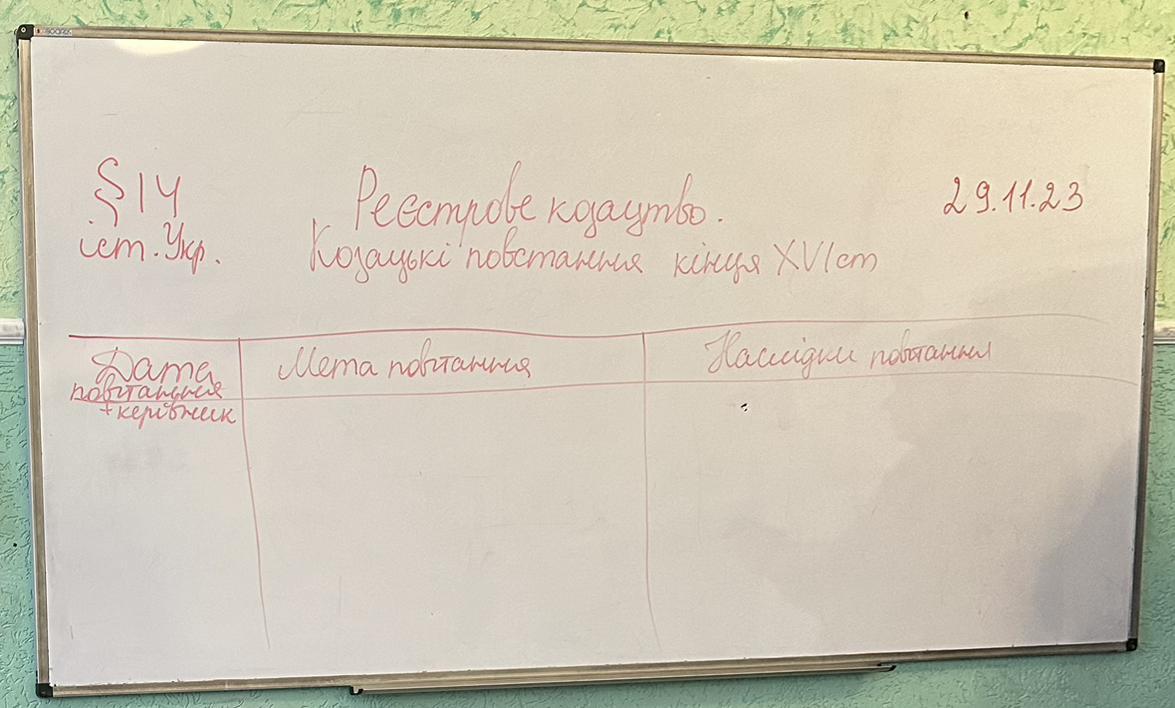 BOARDS
§ 14
іст. Укр.
Реєстрове козацтво.
Козацькі повстання кінця XVI ст
29.11.23
Дата
повстання
+ керівник
Мета повстання
Наслідки повстання